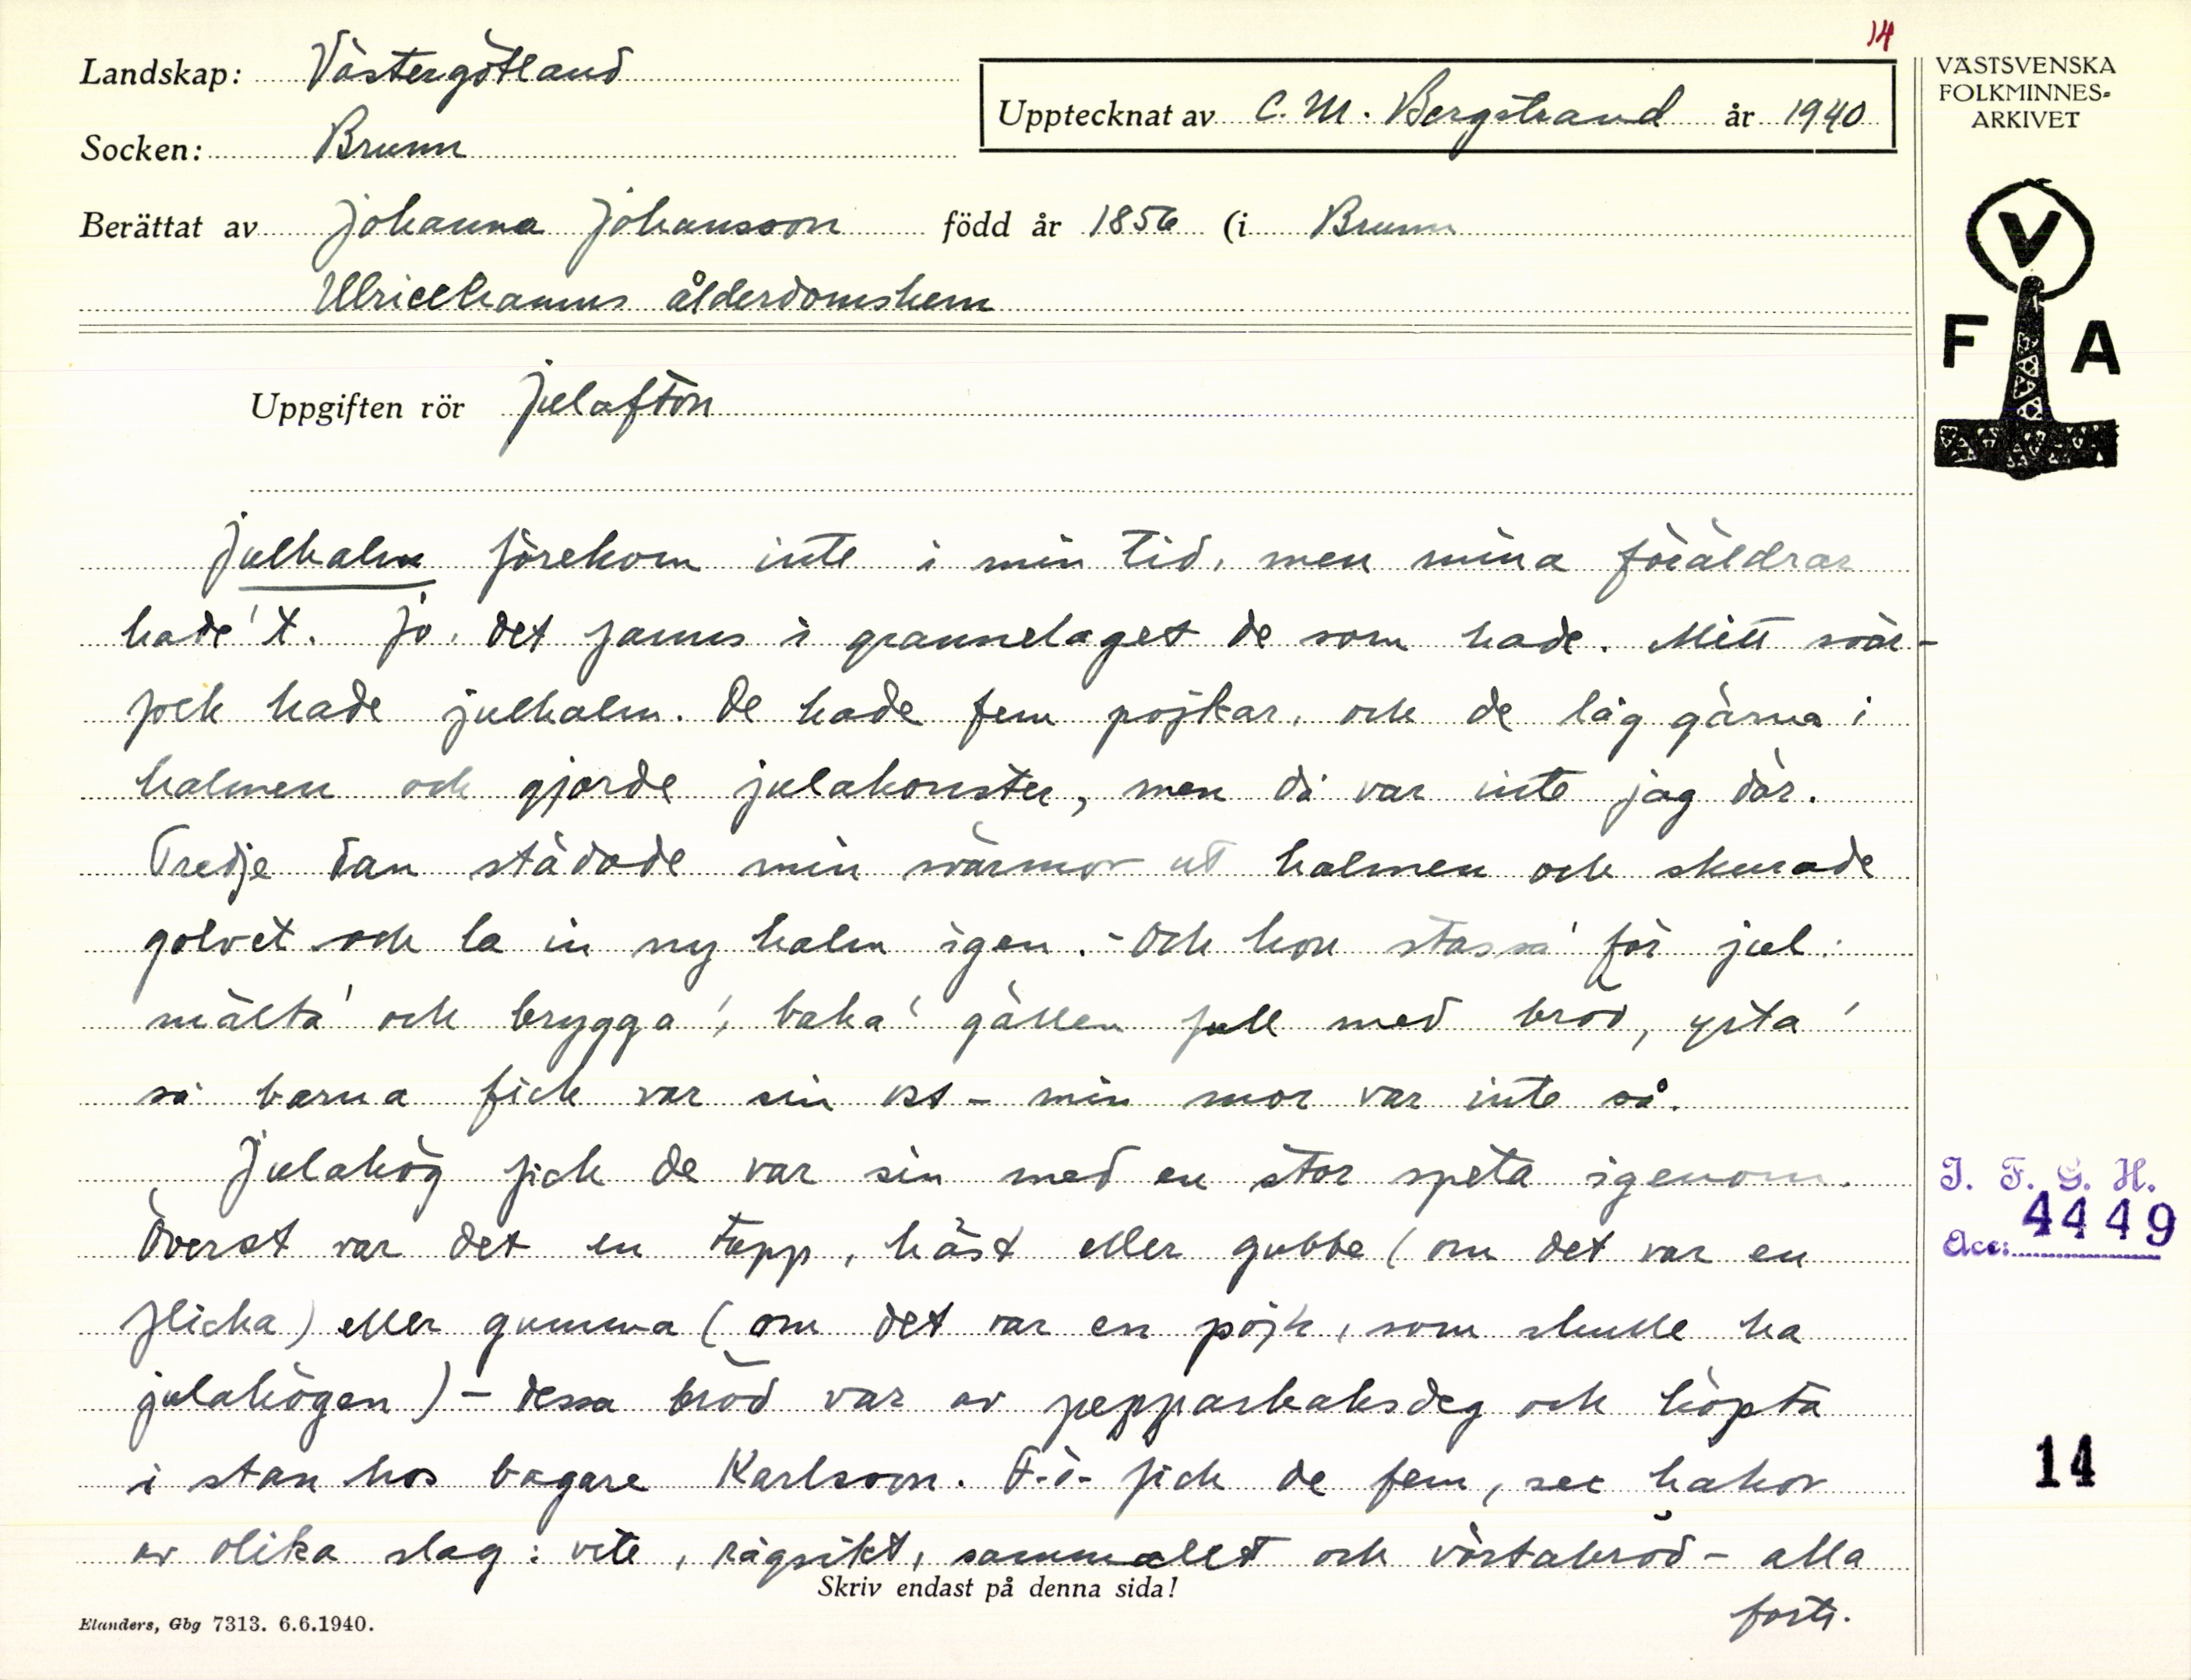 14
Landskap: Västergötland
Upptecknat av C. M. Bergstrand år 1940
VÄSTSVENSKA
FOLKMINNES-
ARKIVET
Socken: Brunn
Berättat av Johanna Johansson född år 1856 (i Brunn
Ulricehamns ålderdomshem
V
F A
Uppgiften rör Julafton
Julhalm förekom inte i min tid, men mina föräldrar
hade't. Jo, det fanns i grannelaget de som hade. Mitt svär-
fock hade julhalm. De hade fem pojkar, och de låg gärna i
halmen och gjorde julakonster, men då var inte jag där.
Tredje dan städade min svärmor ut halmen och skurade
golvet och la in ny halm igen. - Och hon stassa' för jul:
mälta' och brygga', baka' gällen full med bröd, ysta'
så barna fick var sin ost - min mor var inte så.
Julahög fick de var sin med en stor speta igenom.
Överst var det en tupp, häst eller gubbe (om det var en
flicka) eller gumma (om det var en pojk, som skulle ha
julahögen) - dessa bröd var av pepparkaksdeg och köpta
i stan hos bagare Karlsson. F.ö. fick de fem, sex kakor
av olika slag: vete, rågsikt, sammalet och vörtabröd - alla
forts.
Skriv endast på denna sida!
Elanders, Gbg 7313. 6.6.1940.
I. F. G. H.
Acc: 4449
14